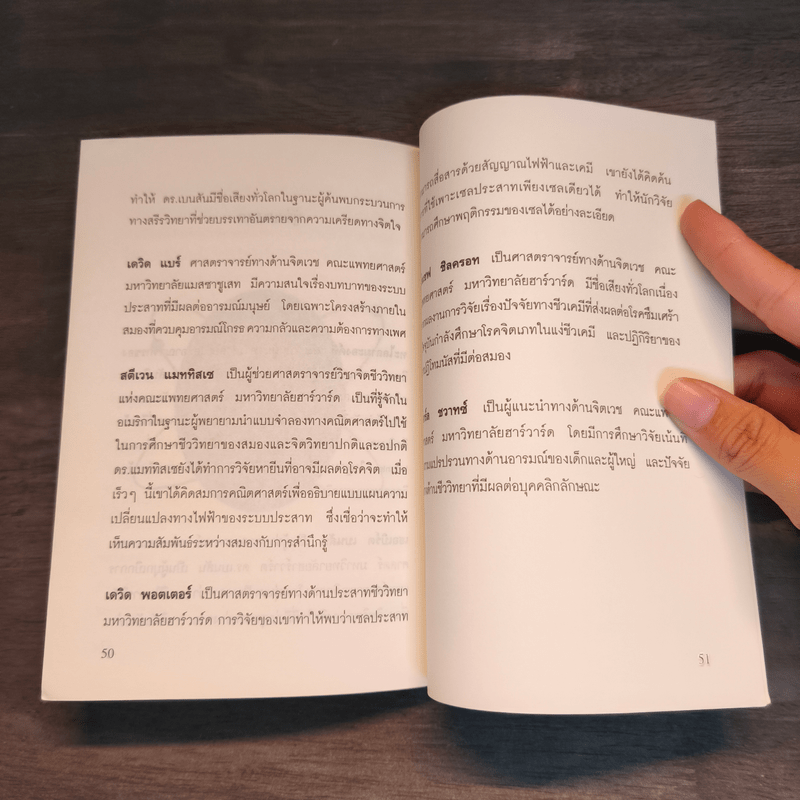 ทำให้ ดร.เบนสันมีชื่อเสียงทั่วโลกในฐานะผู้ค้นพบกระบวนการ
ทางสรีรวิทยาที่ช่วยบรรเทาอันตรายจากความเครียดทางจิตใจ
เดวิด แบร์ ศาสตราจารย์ทางด้านจิตเวช คณะแพทยศาสตร์
มหาวิทยาลัยแมสซาชูเสท มีความสนใจเรื่องบทบาทของระบบ
ประสาทที่มีผลต่ออารมณ์มนุษย์ โดยเฉพาะโครงสร้างภายใน
สมองที่ควบคุมอารมณ์โกรธ ความกลัวและความต้องการทางเพศ
สตีเวน แมททิสเซ เป็นผู้ช่วยศาสตราจารย์วิชาจิตชีววิทยา
แห่งคณะแพทยศาสตร์ มหาวิทยาลัยฮาร์วาร์ด เป็นที่รู้จักใน
อเมริกาในฐานะผู้พยายามนำแบบจำลองทางคณิตศาสตร์ไปใช้
ในการศึกษาชีววิทยาของสมองและจิตวิทยาปกติและอปกติ
ดร.แมททิสเซยังได้ทำการวิจัยหายีนที่อาจมีผลต่อโรคจิต เมื่อ
เร็วๆ นี้เขาได้คิดสมการคณิตศาสตร์เพื่ออธิบายแบบแผนความ
เปลี่ยนแปลงทางไฟฟ้าของระบบประสาท ซึ่งเชื่อว่าจะทำให้
เห็นความสัมพันธ์ระหว่างสมองกับการสำนึกรู้
เดวิด พอตเตอร์ เป็นศาสตราจารย์ทางด้านประสาทชีววิทยา
มหาวิทยาลัยฮาร์วาร์ด การวิจัยของเขาทำให้พบว่าเซลประสาท
50
สื่อสารด้วยสัญญาณไฟฟ้าและเคมี เขายังได้คิดค้น
ที่ใช้เพาะเซลประสาทเพียงเซลเดียวได้ ทำให้นักวิจัย
ศึกษาพฤติกรรมของเซลได้อย่างละเอียด
ชิลดรอท เป็นศาสตราจารย์ทางด้านจิตเวช คณะ
มหาวิทยาลัยฮาร์วาร์ด มีชื่อเสียงทั่วโลกเนื่อง
ผลงานการวิจัยเรื่องปัจจัยทางชีวเคมีที่ส่งผลต่อโรคซึมเศร้า
กำลังศึกษาโรคจิตเภทในแง่ชีวเคมี และปฏิกิริยาของ
ที่มีต่อสมอง
ชวาทซ์ เป็นผู้แนะนำทางด้านจิตเวช
มหาวิทยาลัยฮาร์วาร์ด โดยมีการศึกษาวิจัยเน้น
แปรปรวนทางด้านอารมณ์ของเด็กและผู้ใหญ่ และปัจจัย
ด้านชีววิทยาที่มีผลต่อบุคคลิกลักษณะ
51